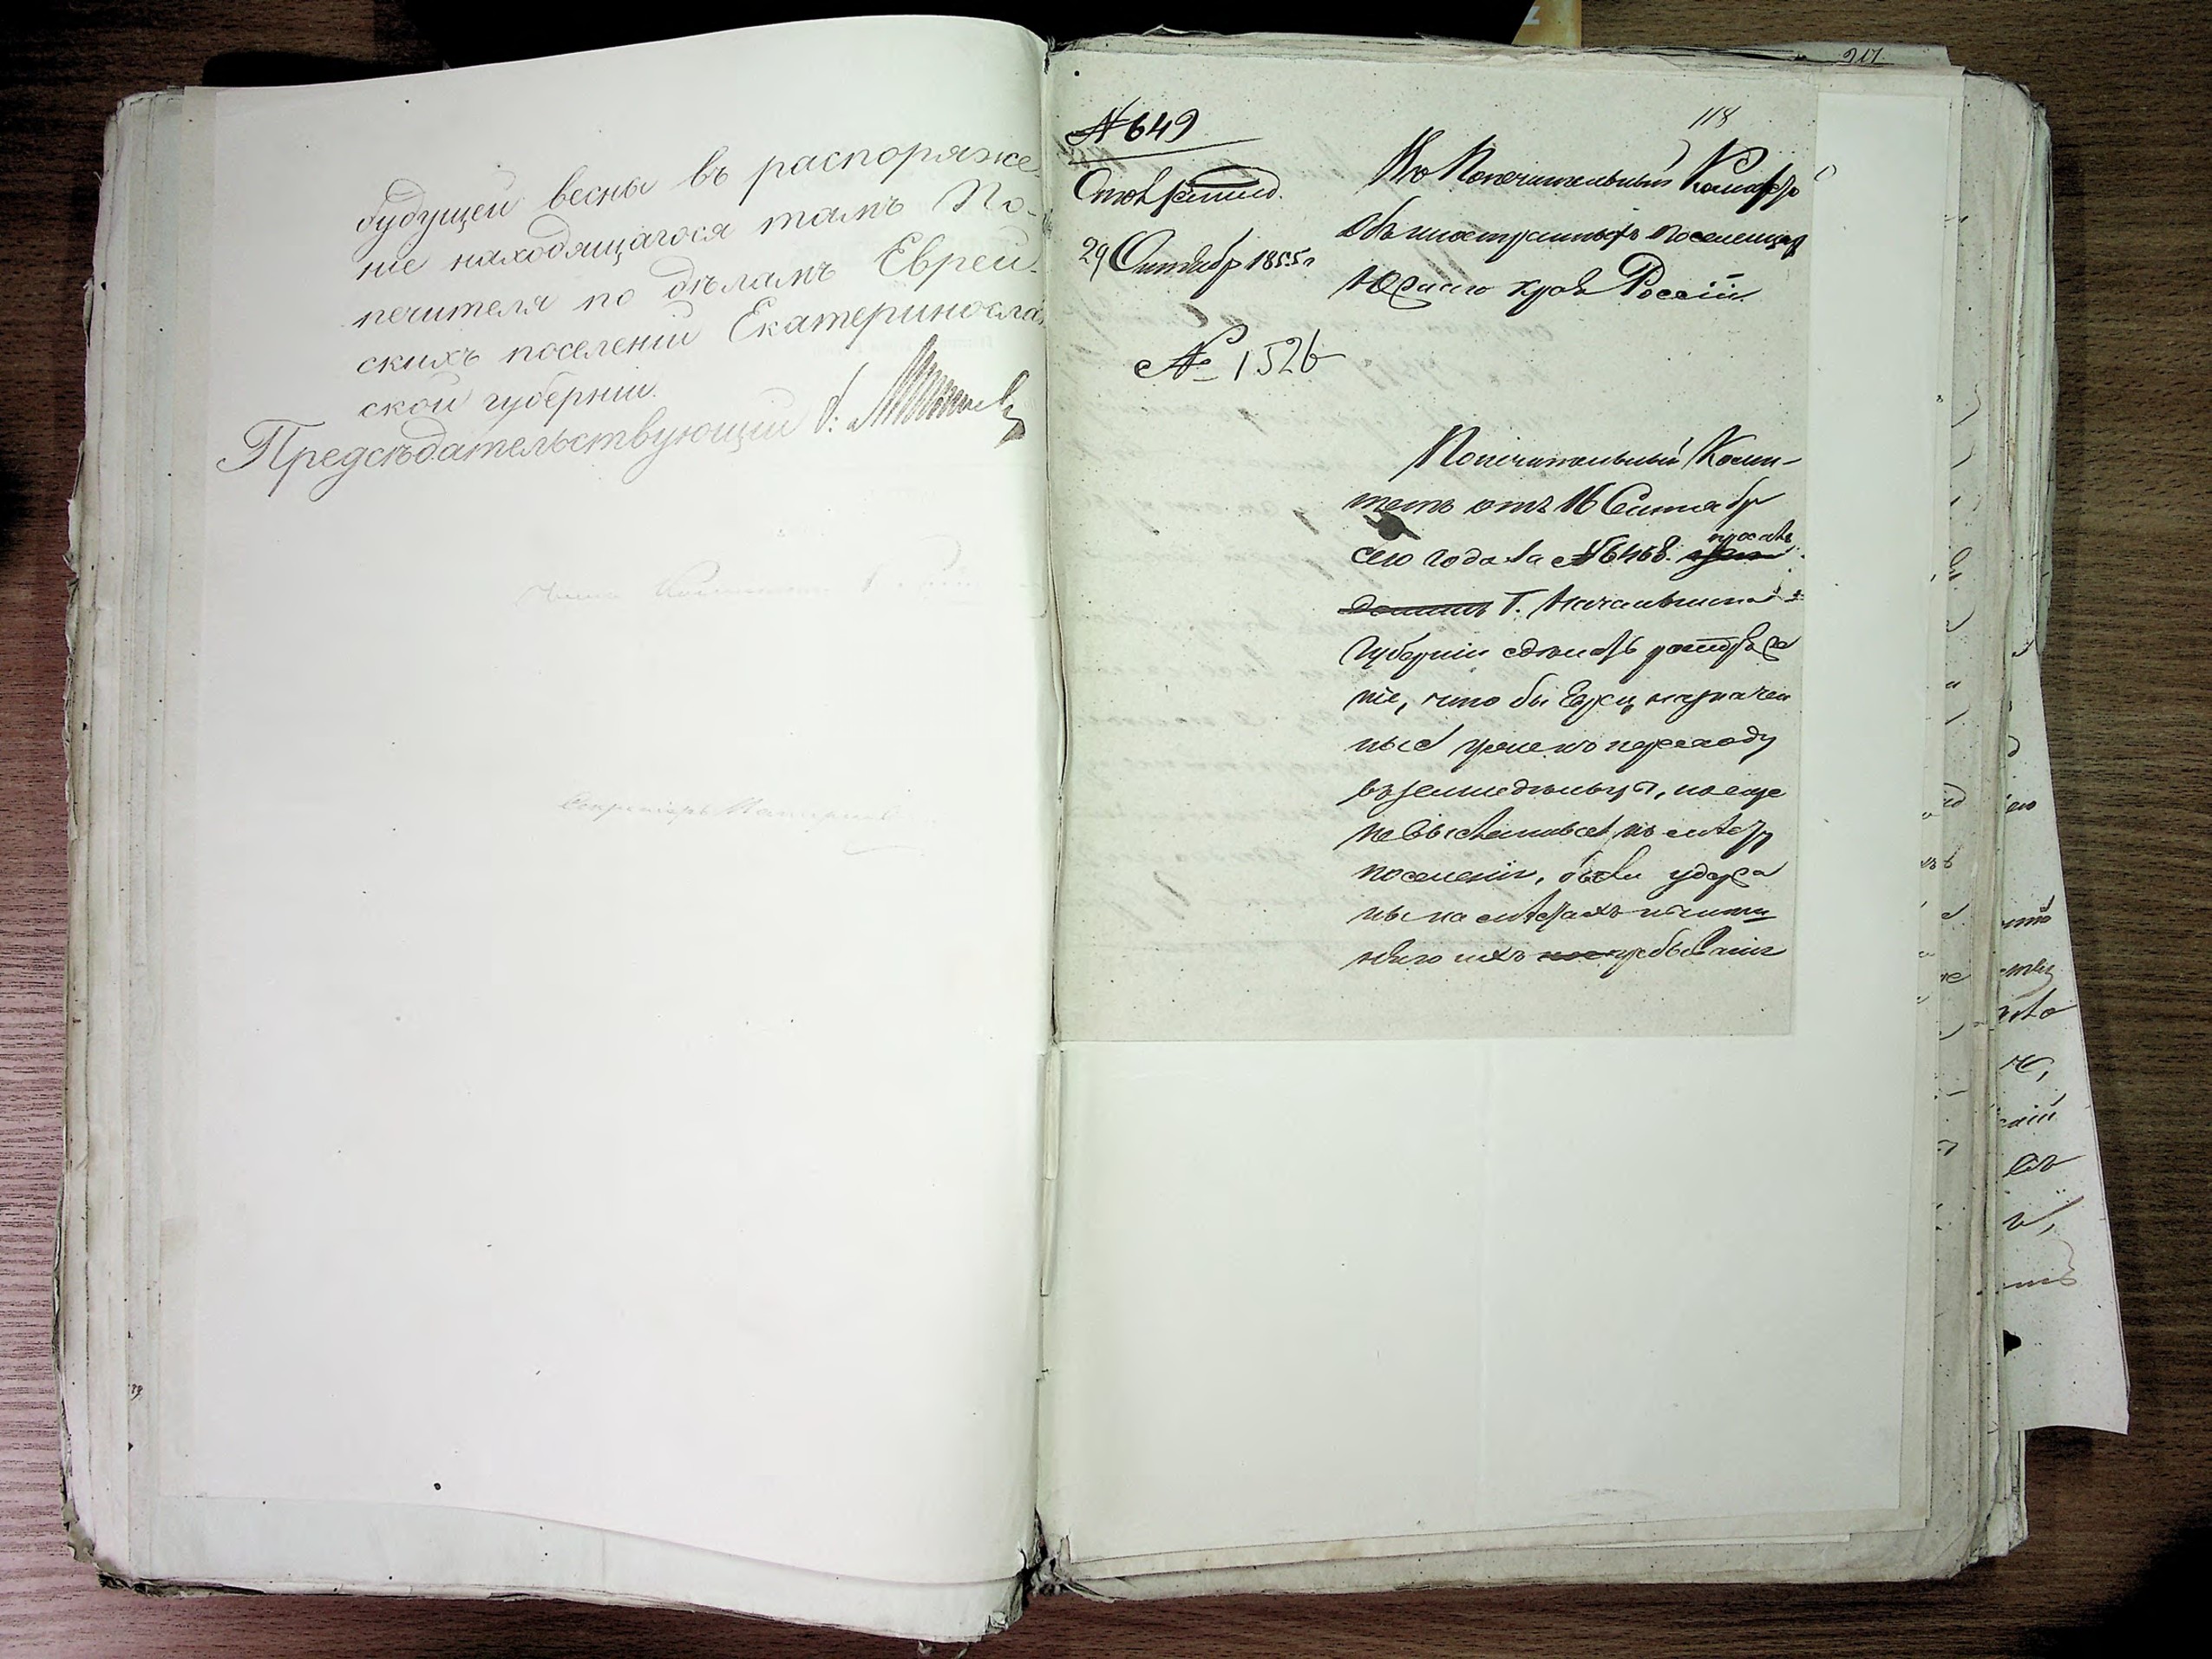 будущей весны въ распоряже-
ніе находящагося тамъ По-
печителя по дѣламъ Еврей-
скихъ поселеній Екатеринослав
ской губерніи.
Предсѣдательствующій б.
Секретарь
217
118
№ 649
29 Октября 1855 г
№ 1526
Въ Попечительный Комитетъ
объ иностранныхъ поселенцахъ
Южнаго края Россіи
Попечительный Коми-
тетъ отъ 16 Сентября
сего года за № 6468. просилъ
Г. Начальника
Губерніи сдѣлать распоряже
ніе, что бы Евреи, назначен
ные уже къ переходу
въ земледѣльцы, но еще
не высланные къ мѣсту
поселенія, были удержа
ны на мѣстахъ
их пребыванія